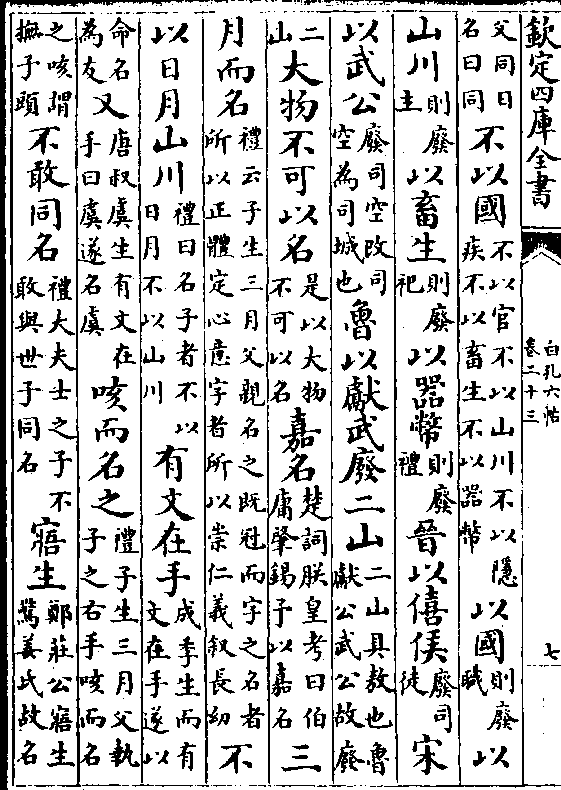 欽定四庫全書
白孔六帖
卷二十三
七
父同日名曰同不以國不以官不以山川不以隱疾不以畜生不以器幣以國則廢職以
山川則廢主以畜生則廢祀以器幣則廢禮晉以僖侯廢司徒宋
以武公廢司空改司空為司城也魯以獻武廢二山二山具敖也魯獻公武公故廢
二山大物不可以名是以大物不可以名嘉名楚詞朕皇考曰伯庸肇錫予以嘉名三
月而名禮云子生三月父親名之既冠而字之名者所以正體定心意字者所以崇仁義叙長幼不
以日月山川禮曰名子者不以日月不以山川有文在手成季生而有文在手遂以
命名為友又唐叔虞生有文在手曰虞遂名虞咳而名之禮子生三月父執子之右手咳而名
之咳謂撫子頭不敢同名禮大夫士之子不敢與世子同名寤生鄭莊公寤生驚姜氏故名